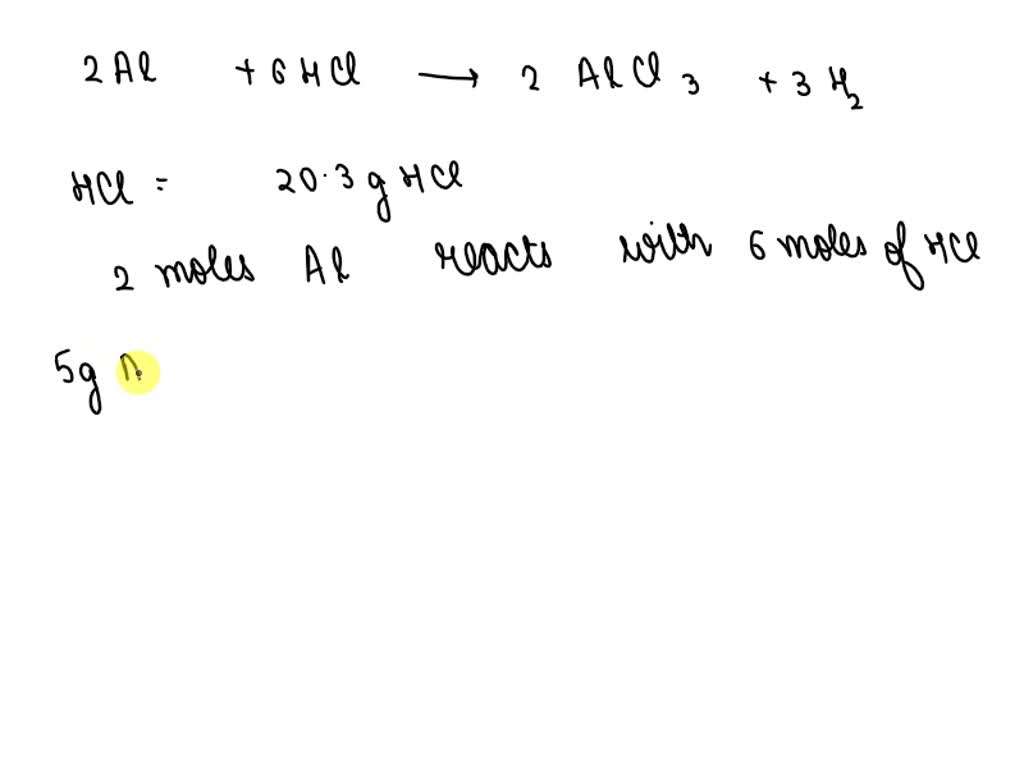 2Al + 6HCl → 2 AlCl3 + 3H2
HCl = 20.3 g HCl
2 moles Al reacts with 6 moles of HCl
5g